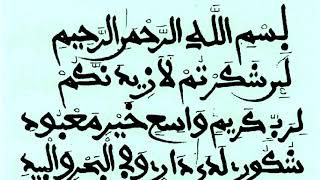 بِسْمِ اللَّهِ الرَّحْمٰنِ الرَّحِيمِ
لَئِن شَكَرْتُمْ لَأَزِيدَنَّكُمْ
لِرَبٍّ كَرِيمٍ وَاسِعٍ خَيْرِ مَعْبُودِ
شَكُورٍ وفِي الْبَحْرِ وَالْبِيدِ